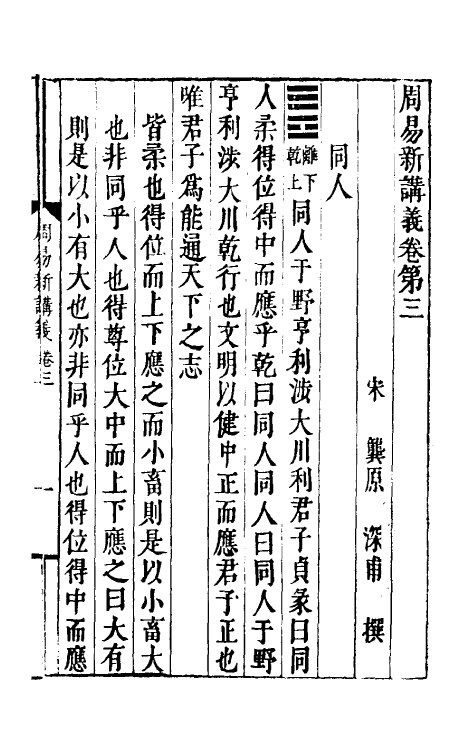 周易新講義卷第三
宋　龔原　深甫　撰
同人
離下乾上同人于野亨利涉大川利君子貞彖曰同
人柔得位得中而應乎乾曰同人同人曰同人于野
亨利涉大川乾行也文明以健中正而應君子正也
唯君子爲能通天下之志
皆柔也得位而上下應之而小畜則是以小畜大
也非同乎人也得尊位大中而上下應之曰大有
則是以小有大也亦非同乎人也得位得中而應
周易新講義　卷三
一